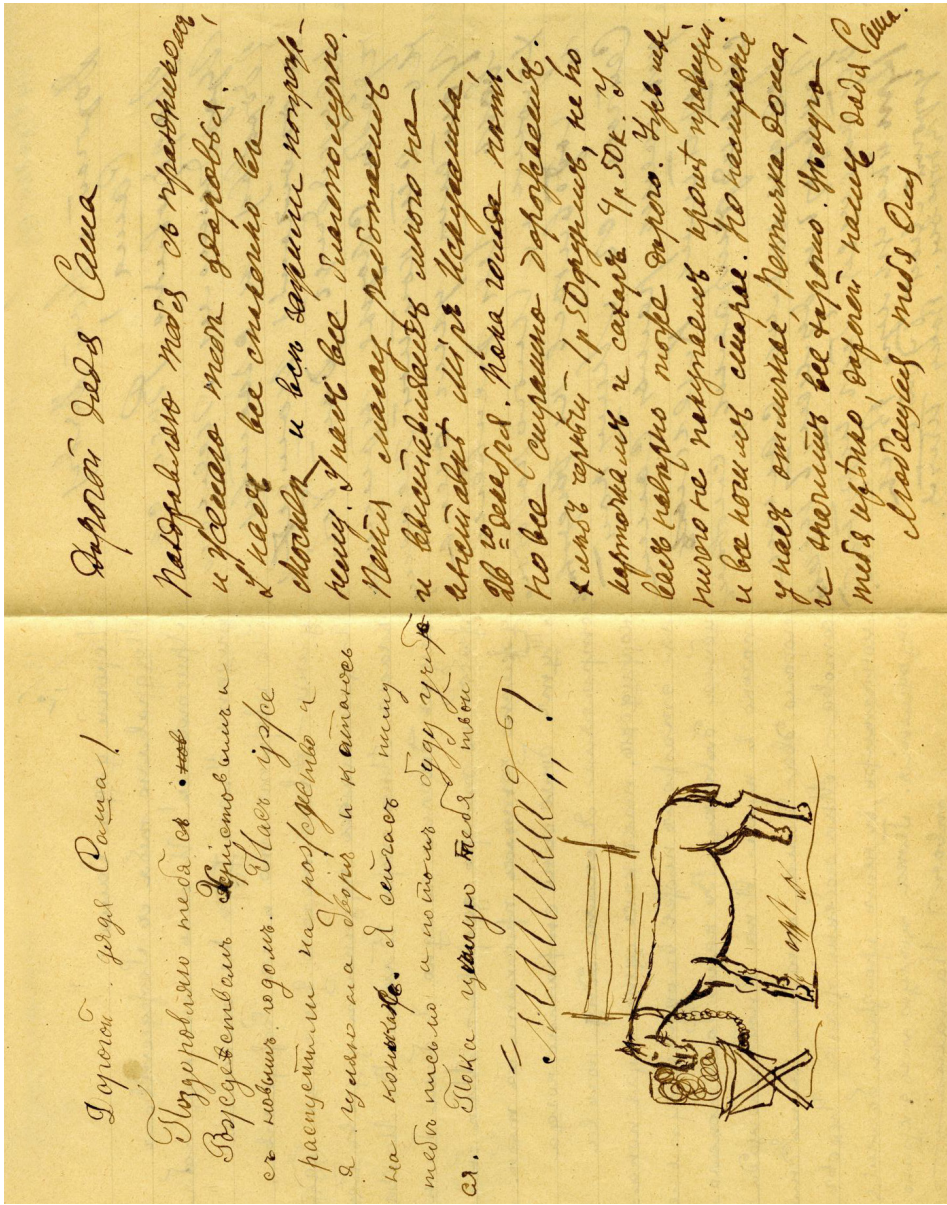 Дорогой дядя Саша!
Поздоровляю тебя съ
Рождествомъ Христовымъ и
съ новымъ годомъ. Насъ уже
распустили на рождество и
я гуляю на дворѣ и катаюсь
на конькахъ. Я сейчасъ пишу
тебѣ письмо а потомъ буду учит
ся. Пока цѣлую тебя твой
"Миша"!
Дорогой дядя Саша
Поздравляю тебя съ праздникомъ
и желаю тебѣ здоровья.
У насъ все спокойно въ
Москвѣ и всѣ
нему. У насъ все благополучно.
Петя работаетъ
и выставляетъ много на
выставкѣ Міръ Искусства,
26го декабря. Пока
но все страшно дорожаетъ.
хлѣбъ черный 1р 50 фунтъ, не по
карточкамъ и сахаръ 4р 50к. У
васъ навѣрно тоже дорого. Мы
ничего не покупаемъ кромѣ провизіи
и все носимъ старое. Но настроение
у насъ отличное, Петичка дома,
и значитъ все хорошо. Цѣлую
тебя крѣпко, дорогой нашъ дядя Саша.
Любящая тебя Оля